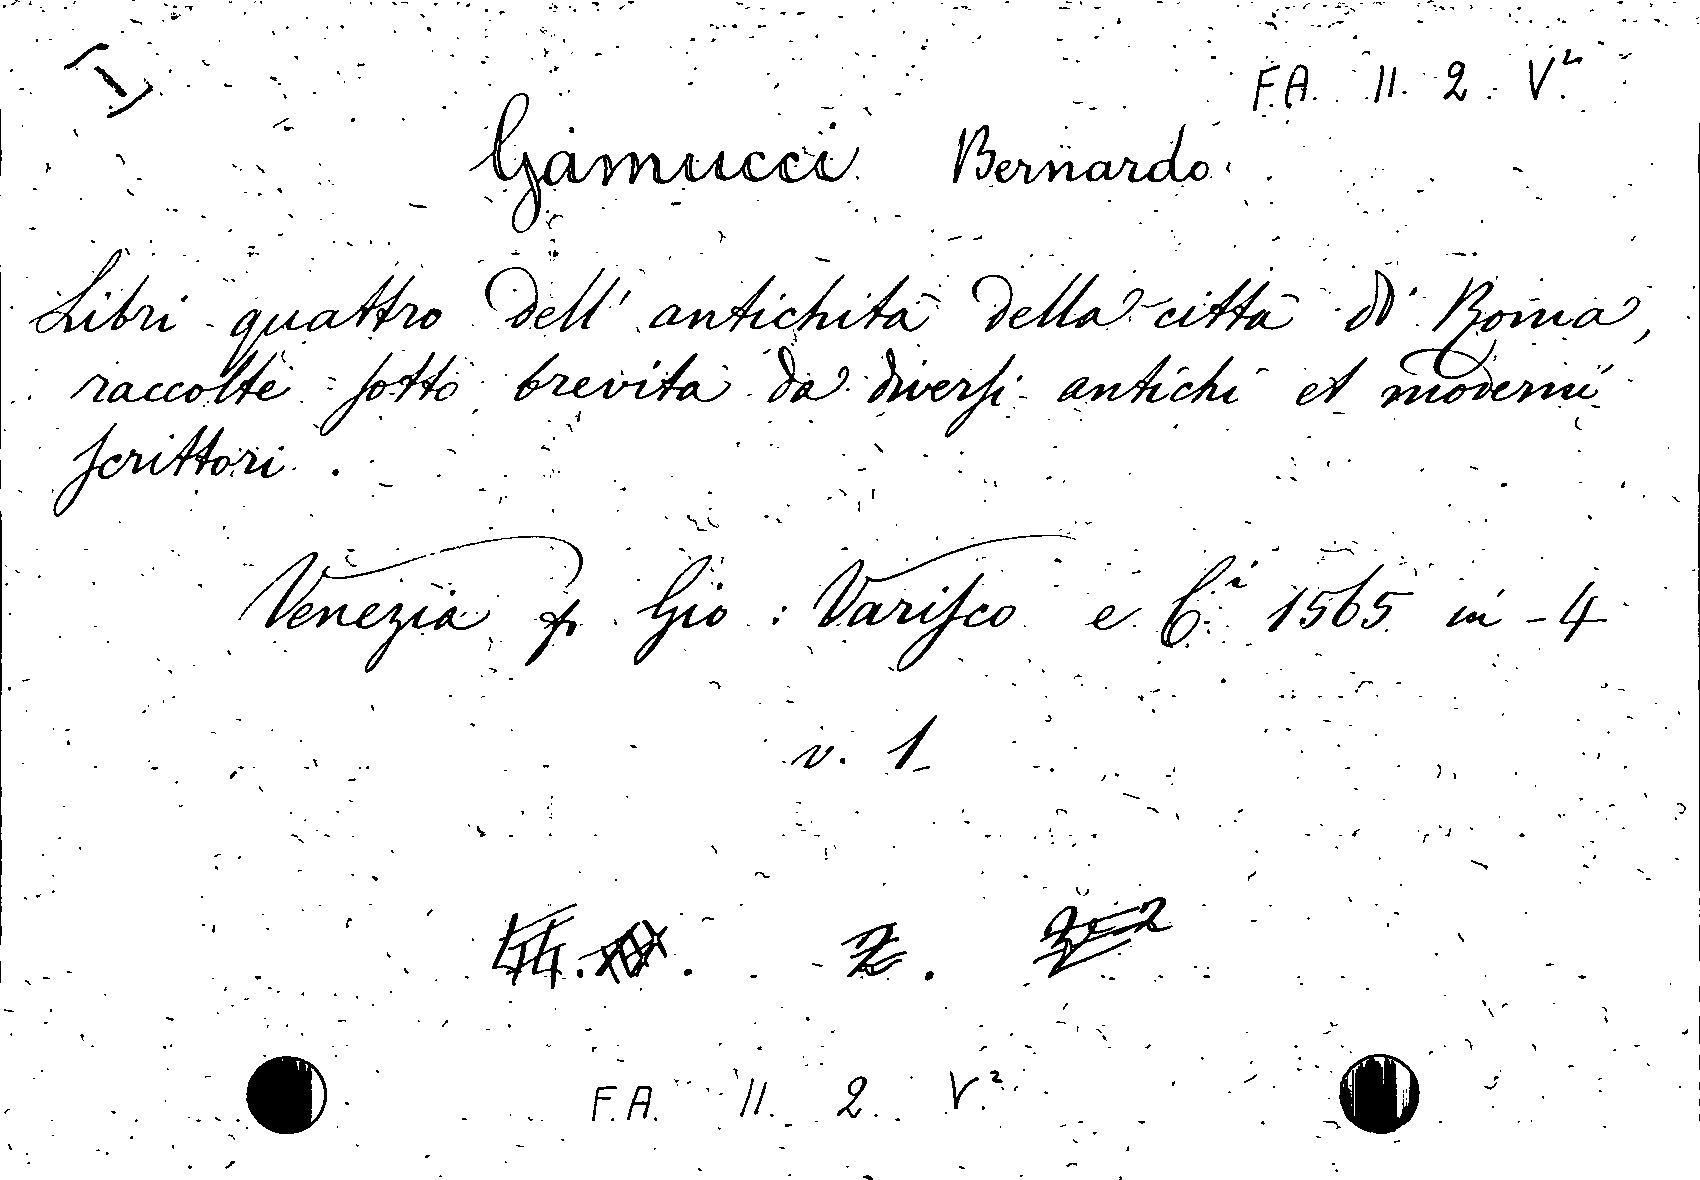 I
F.A. 11. 2. V.²
Gamucci Bernardo.
Libri quattro dell' antichità della città di Roma,
raccolte sotto brevità da diversi antichi et moderni
scrittori.
Venezia p. Gio: Varisco e C.i 1565 in-4
v. 1
F.A. 11. 2. V.²